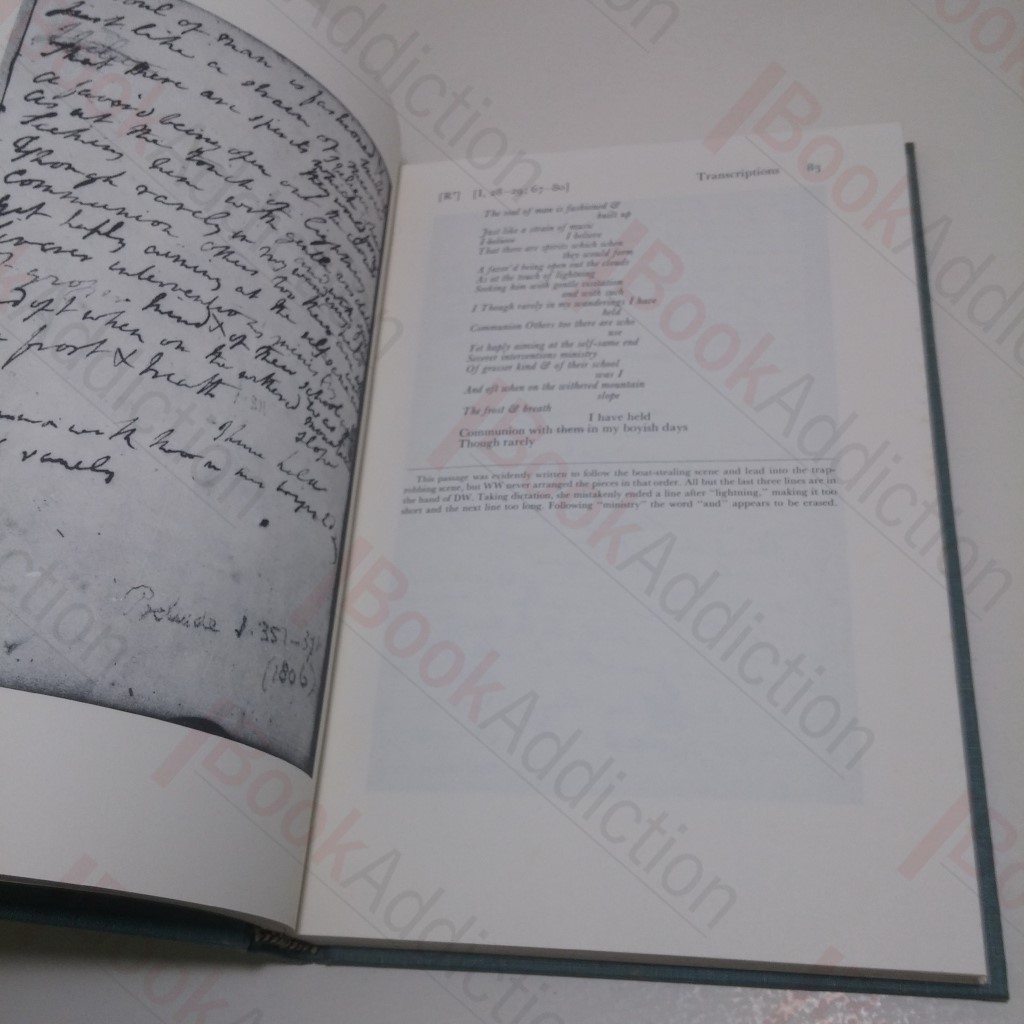 soul of man is fashioned
just like a strain of
that there are spirits which
a favor'd being open out
as at the touch of lightning
Seeking him with gentle
Though rarely in my
communion others too there
Yet haply aiming at the self-same
Severer interventions
of grosser kind & of their school
oft when on the withered
frost & breath
I have held
with them in my boyish days
rarely
Prelude I. 351-
(1806)
Transcriptions 83
[I, 28–29, 67–80]
The soul of man is fashioned &
built up
Just like a strain of music
I believe I believe
That there are spirits which when
they would form
A favor'd being open out the clouds
As at the touch of lightning
Seeking him with gentle visitation
and with such
I Though rarely in my wanderings I have
held
Communion Others too there are who
use
Yet haply aiming at the self-same end
Severer interventions ministry
Of grosser kind & of their school
was I
And oft when on the withered mountain
slope
The frost & breath
I have held
Communion with them in my boyish days
Though rarely
This passage was evidently written to follow the boat-stealing scene and lead into the trap-
robbing scene, but WW never arranged the pieces in that order. All but the last three lines are in
the hand of DW. Taking dictation, she mistakenly ended a line after "lightning," making it too
short and the next line too long. Following "ministry" the word "and" appears to be erased.
BookAddiction